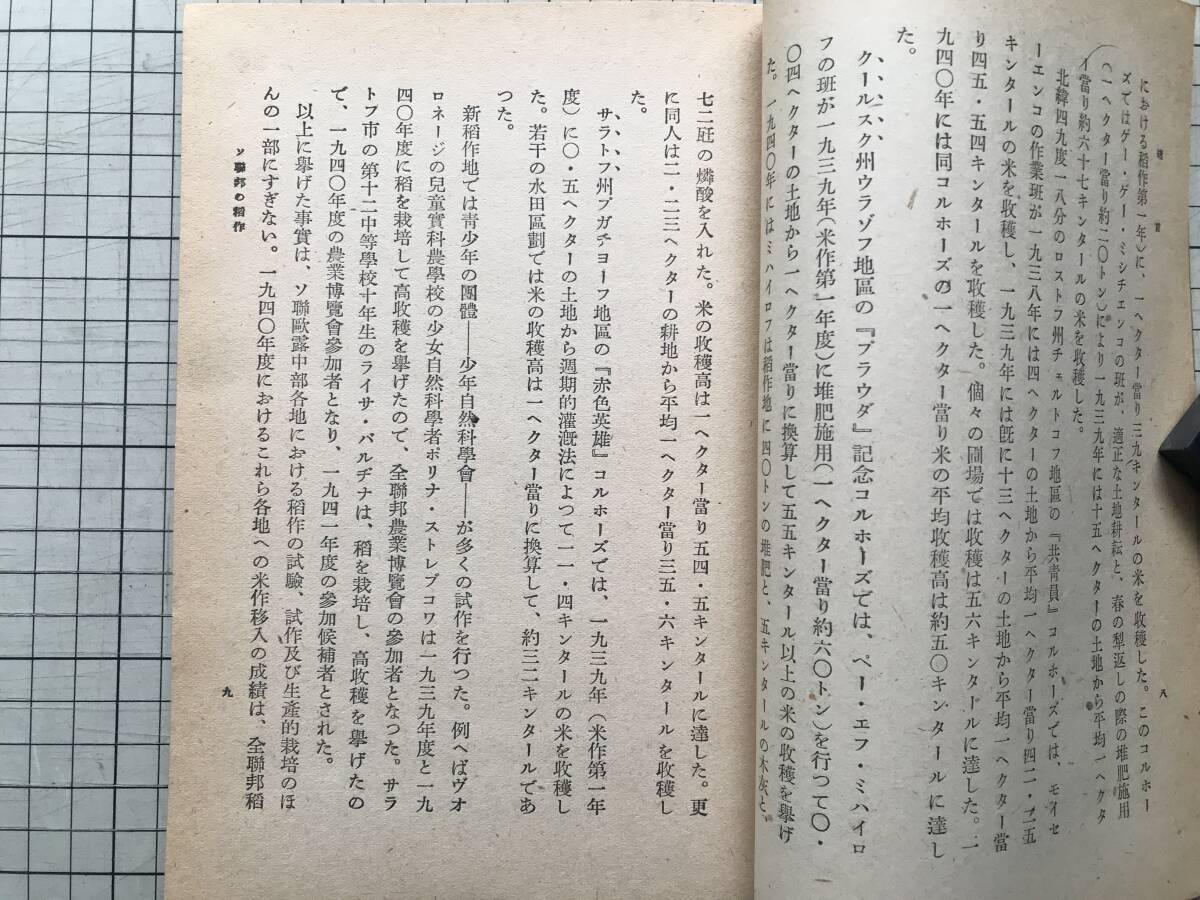 八
における稻作第一年)に、一ヘクター當り三九キンタールの米を收穫した。このコルホー
ズではゲー・ゲー・ミシチェンコの班が、適正な土地耕耘と、春の犁返しの際の堆肥施用
(一ヘクター當り約二〇トン)により一九三九年には十五ヘクターの土地から平均一ヘクタ
イ當り約六十七キンタールの米を收穫した。
北緯四九度一八分のロストフ州チェルトコフ地區の『共靑員』コルホーズでは、モイセ
ーエンコの作業班が一九三八年には四ヘクターの土地から平均一ヘクター當り四二・二五
キンタールの米を收穫し、一九三九年には旣に十三ヘクターの土地から平均一ヘクター當
り四五・五四キンタールを收穫した。個々の圃場では收穫は五六キンタールに達した。一
九四〇年には同コルホーズの一ヘクター當り米の平均收穫高は約五〇キンタールに達し
た。
クールスク州ウラゾフ地區の『プラウダ』記念コルホーズでは、ペー・エフ・ミハイロ
フの班が一九三九年(米作第一年度)に堆肥施用(一ヘクター當り約六〇トン)を行つて〇・
〇四ヘクターの土地から一ヘクター當りに換算して五五キンタール以上の米の收穫を擧げ
た。一九四〇年にはミハイロフは稻作地に四〇トンの堆肥と、五キンタールの木灰と、
七二瓩の燐酸を入れた。米の收穫高は一ヘクター當り五四・五キンタールに達した。更
に同人は二・二三ヘクターの耕地から平均一ヘクター當り三五・六キンタールを收穫し
た。
サラトフ州プガチョーフ地區の『赤色英雄』コルホーズでは、一九三九年(米作第一年
度)に〇・五ヘクターの土地から週期的灌漑法によつて一一・四キンタールの米を收穫し
た。若干の水田區劃では米の收穫高は一ヘクター當りに換算して、約三二キンタールであ
つた。
新稻作地では靑少年の團體――少年自然科學會――が多くの試作を行つた。例へばヴォ
ロネージの兒童實科農學校の少女自然科學者ポリナ・ストレブコワは一九三九年度と一九
四〇年度に稻を栽培して高收穫を擧げたので、全聯邦農業博覽會の參加者となつた。サラ
トフ市の第十二中等學校十年生のライサ・バルヂナは、稻を栽培し、高收穫を擧げたの
で、一九四〇年度の農業博覽會參加者となり、一九四一年度の參加候補者とされた。
以上に擧げた事實は、ソ聯歐露中部各地における稻作の試驗、試作及び生產的栽培のほ
んの一部にすぎない。一九四〇年度におけるこれら各地への米作移入の成績は、全聯邦稻
ソ聯邦の稻作
九